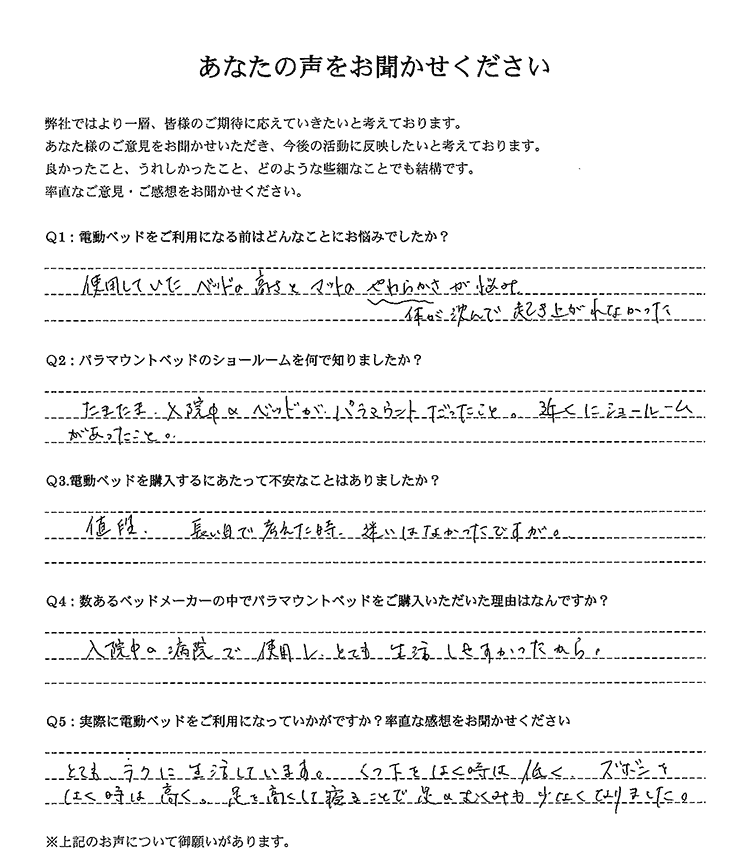 あなたの声をお聞かせください
弊社ではより一層、皆様のご期待に応えていきたいと考えております。
あなた様のご意見をお聞かせいただき、今後の活動に反映したいと考えております。
良かったこと、うれしかったこと、どのような些細なことでも結構です。
率直なご意見・ご感想をお聞かせください。
Q1：電動ベッドをご利用になる前はどんなことにお悩みでしたか？
使用していた ベッドの高さと マットの やわらかさが悩み
体が沈んで 起き上がれなかった
Q2：パラマウントベッドのショールームを何で知りましたか？
たまたま、入院中のベッドがパラマウントだったこと。近くにショールーム
があったこと。
Q3.電動ベッドを購入するにあたって不安なことはありましたか？
値段、 長い目で考えた時、迷いはなかったですが。
Q4：数あるベッドメーカーの中でパラマウントベッドをご購入いただいた理由はなんですか？
入院中の病院で使用し、とても 生活しやすかったから。
Q5：実際に電動ベッドをご利用になっていかがですか？率直な感想をお聞かせください
とても ラクに 生活しています。 くつ下をはく時は 低く、 ズボンを
はく時は 高く。足を高くして寝ることで足のむくみも少なくなりました。
※上記のお声について御願いがあります。